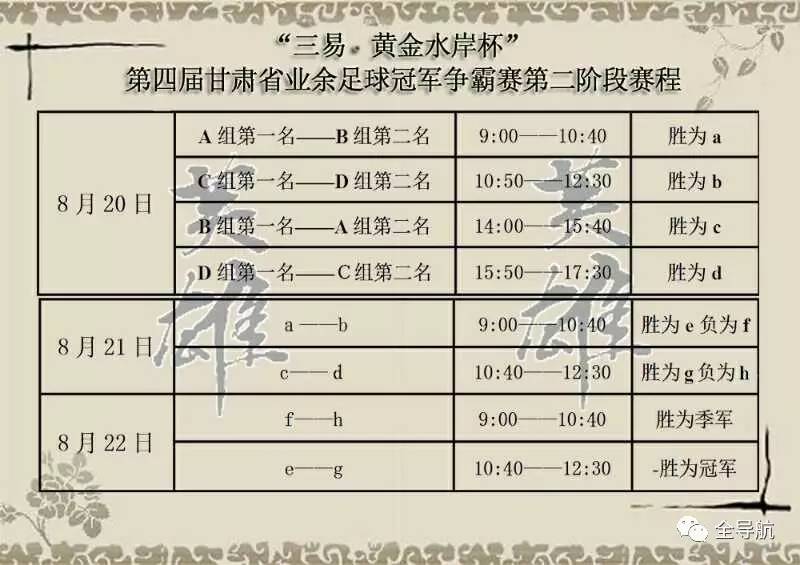 “三易·黄金水岸杯”
第四届甘肃省业余足球冠军争霸赛第二阶段赛程
8月20日
A 组第一名——B 组第二名 9:00——10:40 胜为 a
C 组第一名——D 组第二名 10:50——12:30 胜为 b
B 组第一名——A 组第二名 14:00——15:40 胜为 c
D 组第一名——C 组第二名 15:50——17:30 胜为 d
8月21日
a——b 9:00——10:40 胜为 e 负为 f
c——d 10:40——12:30 胜为 g 负为 h
8月22日
f——h 9:00——10:40 胜为季军
e——g 10:40——12:30 -胜为冠军
英雄
英雄
全导航